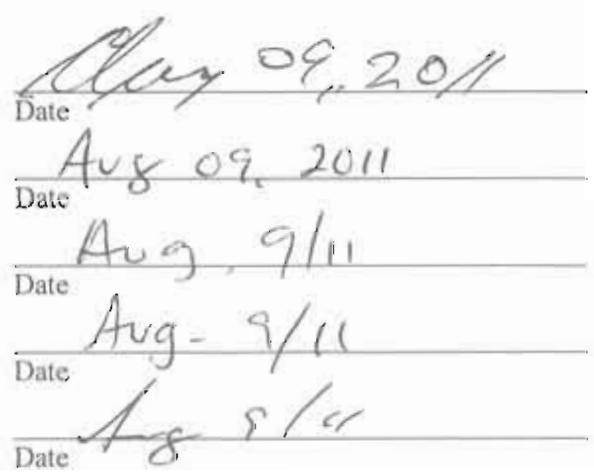 Aug 09, 2011
Date
Aug 09, 2011
Date
Aug. 9/11
Date
Aug- 9/11
Date
Aug 9/11
Date